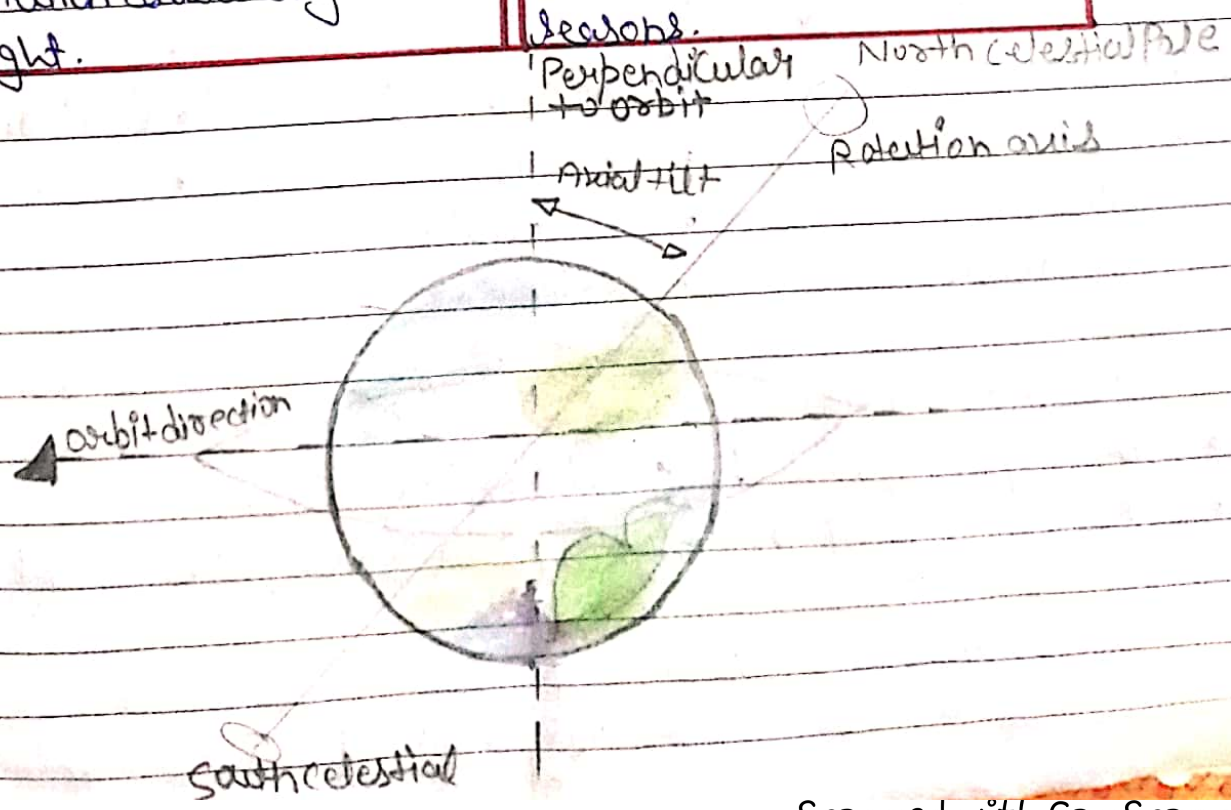 ght.
seasons.
Perpendicular
to orbit
North celestial Pole
Rotation axis
Axial tilt
orbit direction
South celestial